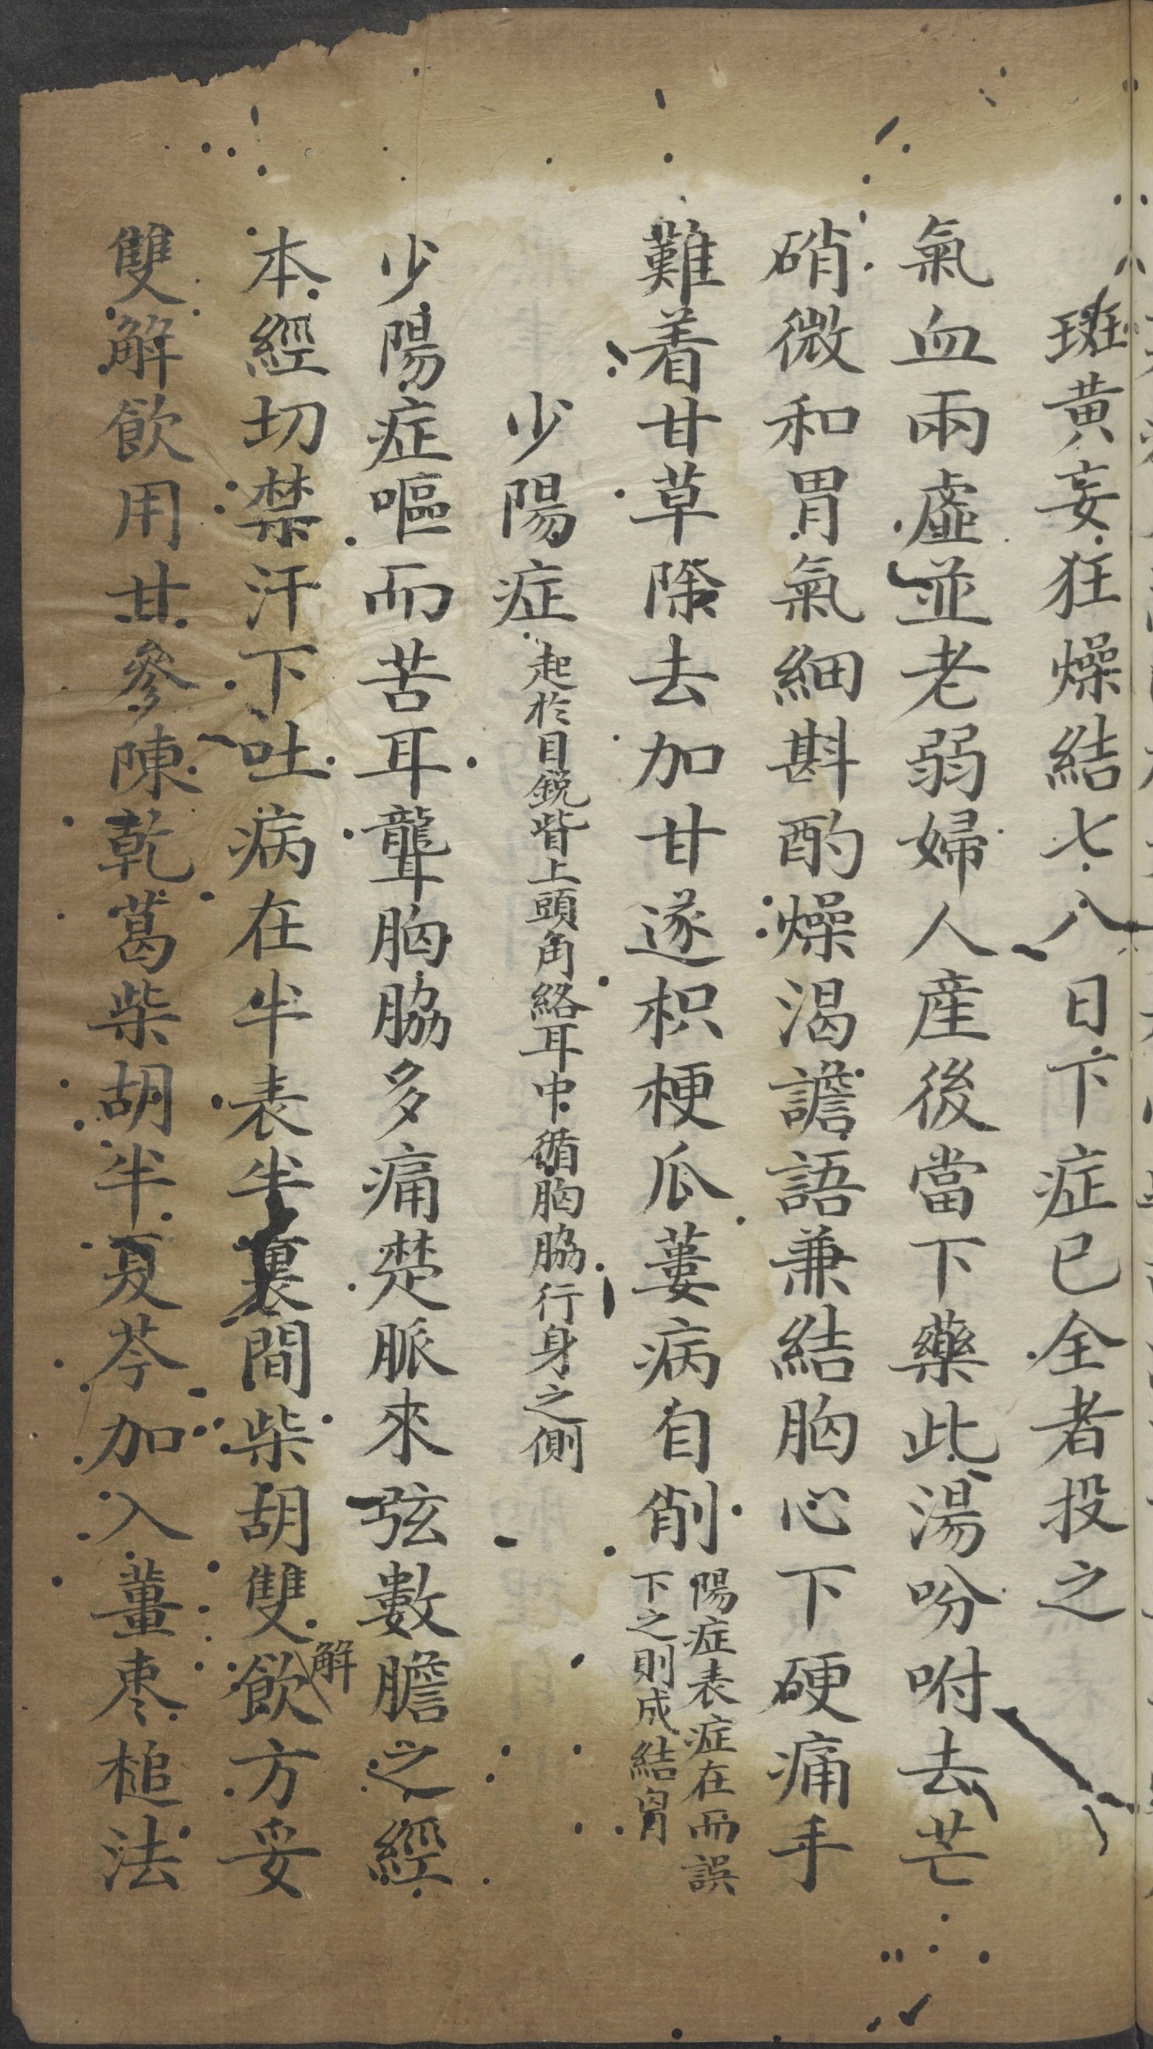 斑黄妄狂燥結七八日下症已全者投之
氣血兩虛並老弱婦人産後當下藥此湯吩咐去芒
硝微和胃氣細斟酌燥渴譫語兼結胸心下硬痛手
難着甘草除去加甘遂枳梗瓜蔞病自削
陽症表症在而誤
下之則成結胷
少陽症
起於目銳眥上頭角絡耳中循胸脇行身之側
少陽症嘔而苦耳聾胸脇多痛楚脈來弦數膽之經
本經切禁汗下吐病在半表半裏間柴胡雙解飲方妥
雙解飲用甘參陳乾葛柴胡半夏芩加入薑棗槌法